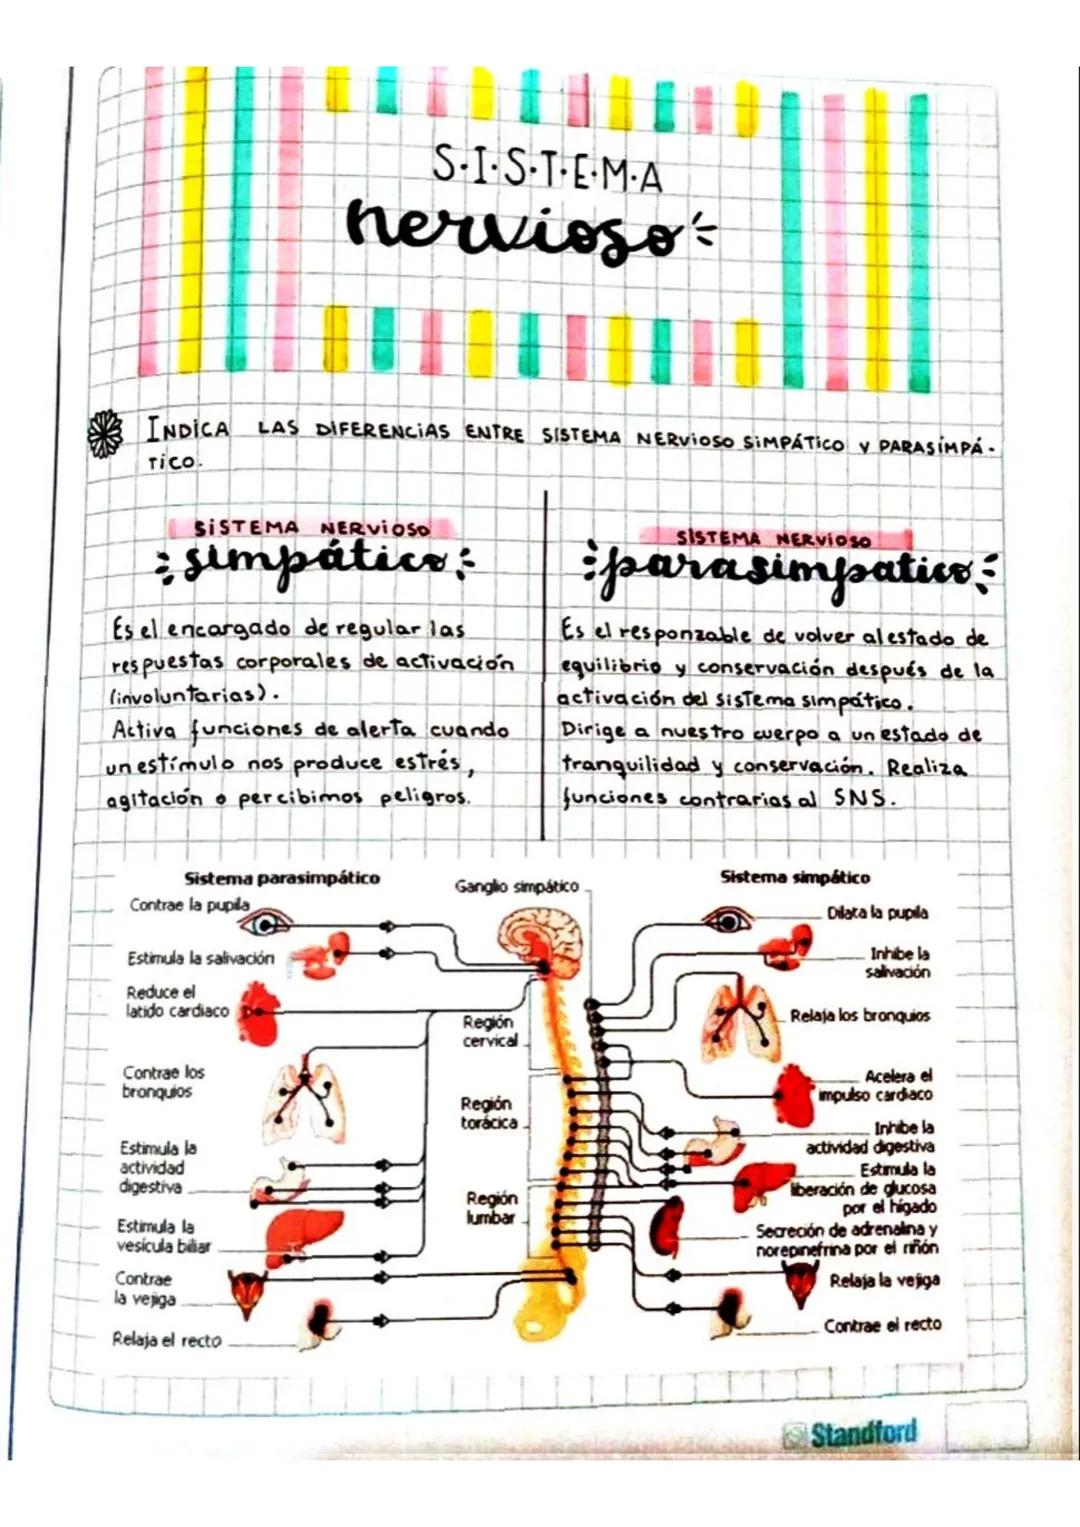 S·I·S·T·E·M·A
nervioso
INDICA LAS DIFERENCIAS ENTRE SISTEMA NERVIOSO SIMPÁTICO Y PARASIMPÁ-
TICO.
SISTEMA NERVIOSO
simpático
Es el encargado de regular las
respuestas corporales de activación
(involuntarias).
Activa funciones de alerta cuando
un estímulo nos produce estrés,
agitación o percibimos peligros.
SISTEMA NERVIOSO
parasimpatico
Es el responzable de volver al estado de
equilibrio y conservación después de la
activación del sistema simpático.
Dirige a nuestro cuerpo a un estado de
tranquilidad y conservación. Realiza
funciones contrarias al SNS.
Sistema parasimpático
Contrae la pupila
Estimula la salivación
Reduce el
latido cardiaco
Contrae los
bronquios
Estimula la
actividad
digestiva
Estimula la
vesícula biliar
Contrae
la vejiga
Relaja el recto
Ganglio simpático
Región
cervical
Región
torácica
Región
lumbar
Sistema simpático
Dilata la pupila
Inhibe la
salivación
Relaja los bronquios
Acelera el
impulso cardiaco
Inhibe la
actividad digestiva
Estimula la
liberación de glucosa
por el hígado
Secreción de adrenalina y
norepinefrina por el riñón
Relaja la vejiga
Contrae el recto
Standford